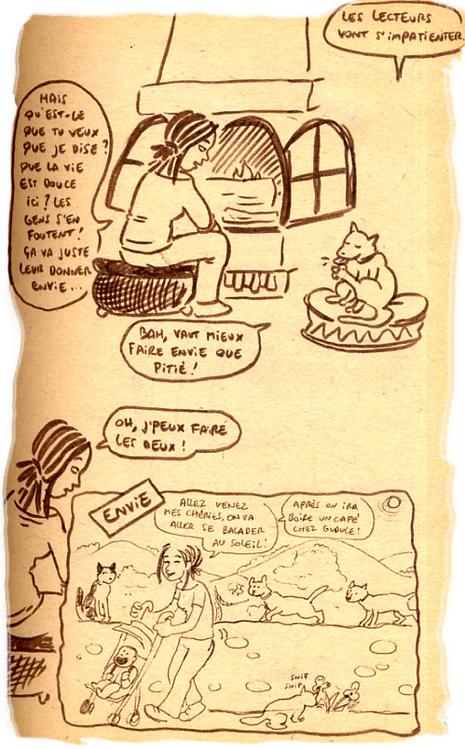 LES LECTEURS
VONT S'IMPATIENTER.
MAIS
QU'EST-CE
QUE TU VEUX
QUE JE DISE ?
QUE LA VIE
EST DOUCE
ICI ? LES
GENS S'EN
FOUTENT !
ÇA VA JUSTE
LEUR DONNER
ENVIE...
BAH, VAUT MIEUX
FAIRE ENVIE QUE
PITIÉ !
OH, J'PEUX FAIRE
LES DEUX !
ENVIE
ALLEZ VENEZ
MES CHÉRIES, ON VA
ALLER SE BALADER
AU SOLEIL !
APRÈS ON IRA
BOIRE UN CAFÉ
CHEZ GUDULE !
SNIF
SNIF